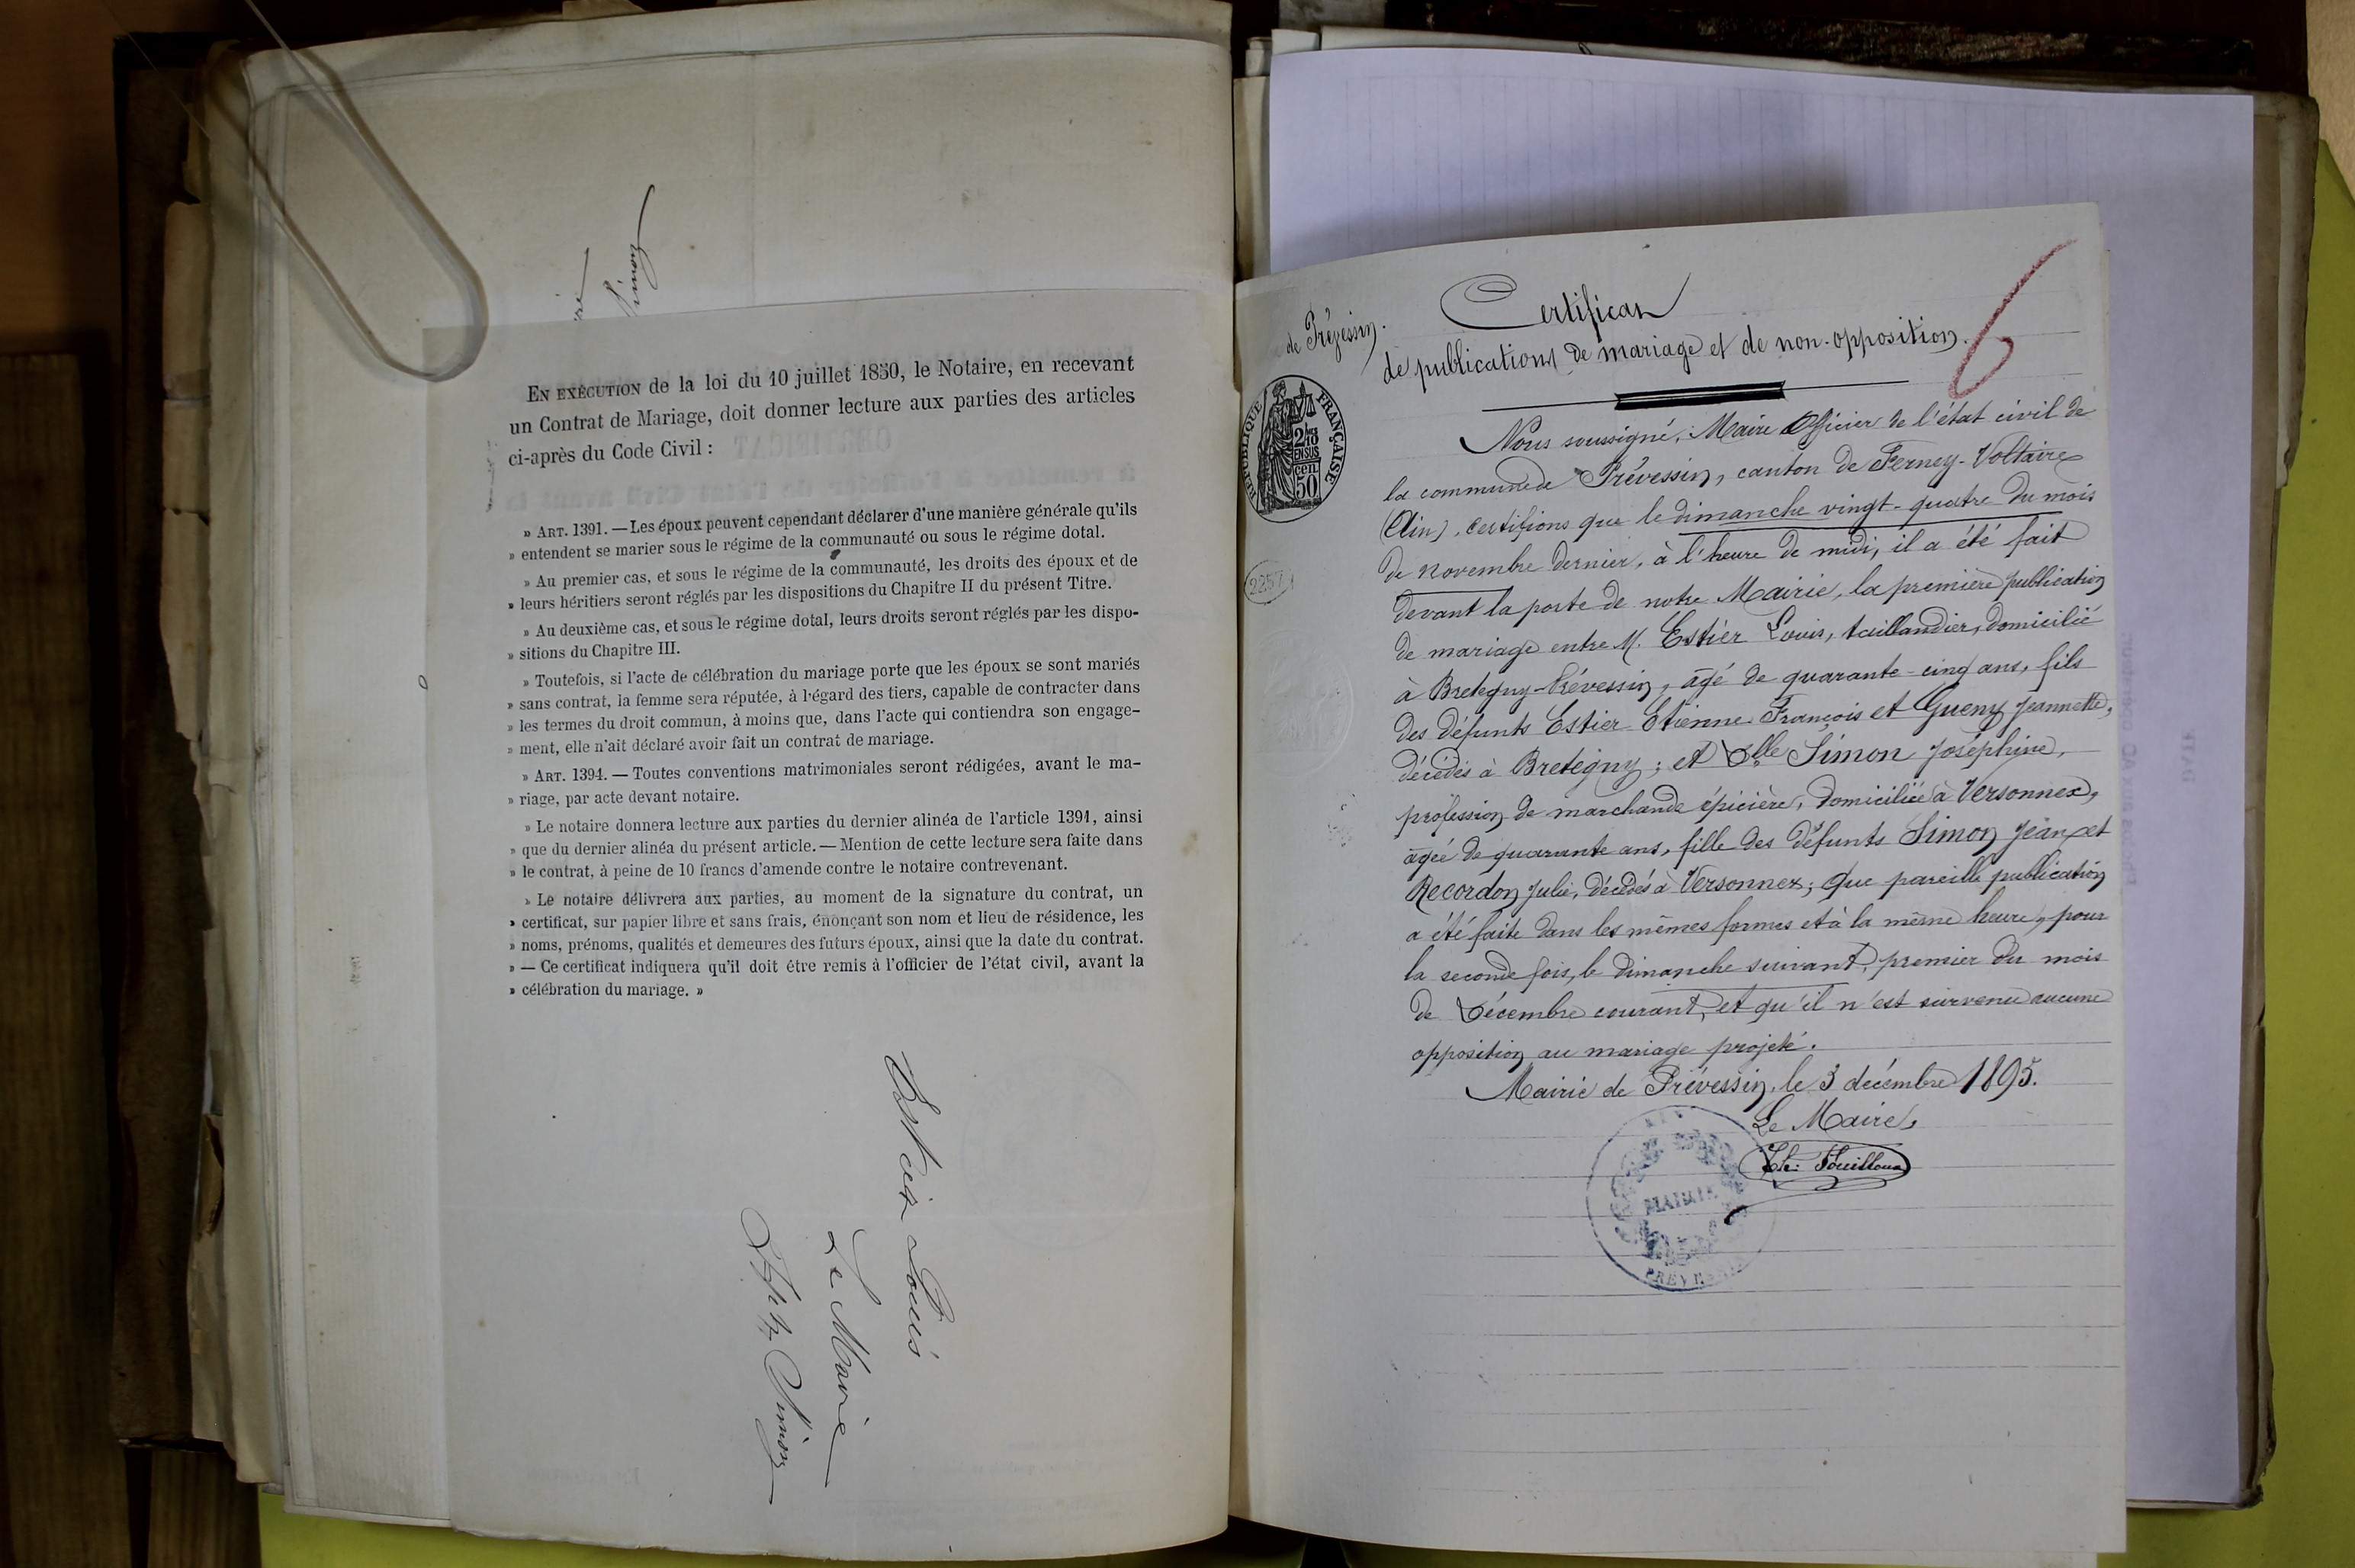 Simon
EN EXÉCUTION de la loi du 10 juillet 1850, le Notaire, en recevant
un Contrat de Mariage, doit donner lecture aux parties des articles
ci-après du Code Civil :
» ART. 1391. — Les époux peuvent cependant déclarer d'une manière générale qu'ils
» entendent se marier sous le régime de la communauté ou sous le régime dotal.
» Au premier cas, et sous le régime de la communauté, les droits des époux et de
» leurs héritiers seront réglés par les dispositions du Chapitre II du présent Titre.
» Au deuxième cas, et sous le régime dotal, leurs droits seront réglés par les dispo-
» sitions du Chapitre III.
» Toutefois, si l'acte de célébration du mariage porte que les époux se sont mariés
» sans contrat, la femme sera réputée, à l'égard des tiers, capable de contracter dans
» les termes du droit commun, à moins que, dans l'acte qui contiendra son engage-
» ment, elle n'ait déclaré avoir fait un contrat de mariage.
» ART. 1394. — Toutes conventions matrimoniales seront rédigées, avant le ma-
» riage, par acte devant notaire.
» Le notaire donnera lecture aux parties du dernier alinéa de l'article 1391, ainsi
» que du dernier alinéa du présent article. — Mention de cette lecture sera faite dans
» le contrat, à peine de 10 francs d'amende contre le notaire contrevenant.
» Le notaire délivrera aux parties, au moment de la signature du contrat, un
» certificat, sur papier libre et sans frais, énonçant son nom et lieu de résidence, les
» noms, prénoms, qualités et demeures des futurs époux, ainsi que la date du contrat.
» — Ce certificat indiquera qu'il doit être remis à l'officier de l'état civil, avant la
» célébration du mariage. »
Estier Louis
Le Maire
Simon
de Prévessin.
Certificat
de publications de mariage et de non-opposition.
6
RÉPUBLIQUE FRANÇAISE
2/10 EN SUS
50 cen
2257
Nous soussigné, Maire Officier de l'état civil de
la commune de Prévessin, canton de Ferney-Voltaire
(Ain), certifions que le dimanche vingt-quatre du mois
de novembre dernier, à l'heure de midi, il a été fait
devant la porte de notre Mairie, la première publication
de mariage entre M. Estier Louis, taillandier, domicilié
à Bretegny-Prévessin, âgé de quarante-cinq ans, fils
des défunts Estier Etienne François et Gueny Jeannette,
décédés à Bretegny; et Dlle Simon Joséphine,
profession de marchande épicière, domiciliée à Versonnex,
âgée de quarante ans, fille des défunts Simon Jean et
Recordon Julie, décédés à Versonnex; que pareille publication
a été faite dans les mêmes formes et à la même heure, pour
la seconde fois, le dimanche suivant, premier du mois
de Décembre courant, et qu'il n'est survenu aucune
opposition au mariage projeté.
Mairie de Prévessin, le 3 décembre 1895.
Le Maire,
MAIRIE
PRÉVESSIN